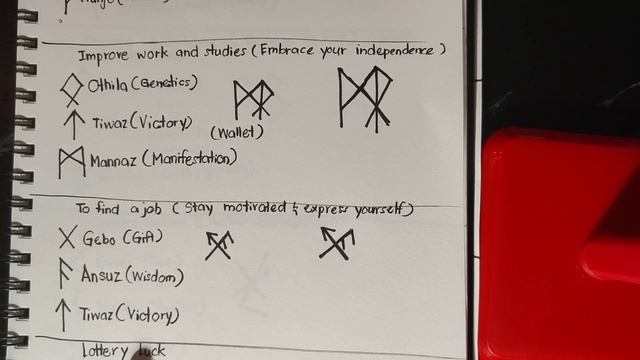 Improve work and studies (Embrace your independence)
Othila (Genetics)
Tiwaz (Victory)
(Wallet)
Mannaz (Manifestation)
To find a job (Stay motivated & express yourself)
Gebo (Gift)
Ansuz (Wisdom)
Tiwaz (Victory)
Lottery luck